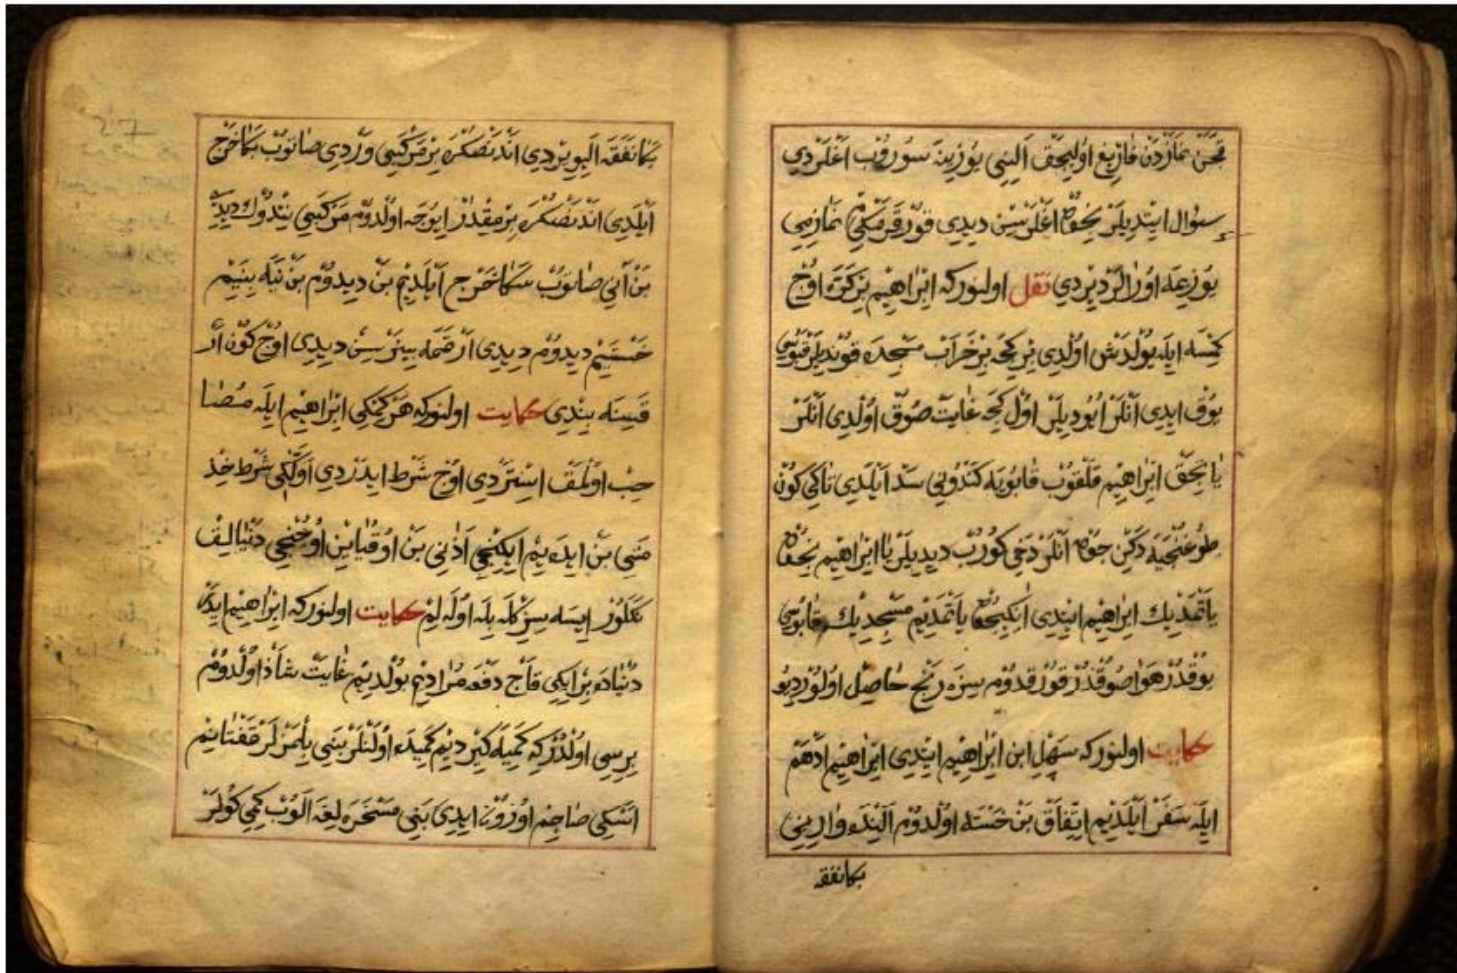 قَچَنْ نَمَازْدَنْ فَارِغ اوُلِیجَقْ اَلِینِی یوُزِینَه سوُرُوبْ اَغْلَرْدِی
سؤال ایتدِیلَرْ نِیچوُن اَغْلَرْسِنْ دیدِی قوُرْقَرَمْکِی نَمَازِمِی
یوُزِمَه اوُرَالَرْ دِیرْدِی نَقْل اولنور که اِبْرَاهِیم بِرْ کَرَّه اوُچ
کِمْسَه اِیلَه یوُلْدَشْ اوُلْدِی بِرْ کِیجَه بِرْ خَرَابْ مَسْجِدَه قوُنْدِیلَرْ قَپوُسِی
یوُقْ اِیدِی آنْلَرْ اُیوُدِیلَرْ اوُلْ کِیجَه غَایَتْ صوُقْ اوُلْدِی آنْلَرْ
یَاتِیجَقْ اِبْرَاهِیم قَلْقوُبْ قَاپوُیَه کَنْدُونِی سَدّ اَیْلَدِی تَاکِی کوُنْ
طوُغِنْجَیَه دَکِینْ آنْلَرْ دَخِی کوُرُبْ دِیدِیلَرْ یَا اِبْرَاهِیم نِیچوُن
یَاتْمَدِیكْ اِبْرَاهِیم اَیْتدِی اَنِکِیچوُن یَاتْمَدِیم مَسْجِدِیكْ قَاپوُسِی
یوُقْدُرْ هَوَا صوُقْدُرْ قوُرْقدُومْ سِزَه رَنْج حَاصِل اوُلوُر دِیوُ
حکایت اولنور که سَهْلِ ابن اِبْرَاهِیم اَیْتدِی اِبْرَاهِیم اَدْهَمْ
اِیلَه سَفَرْ اَیْلَدِیم اِتِّفَاقْ بَنْ خَسْتَه اوُلْدُومْ اَلِنْدَه وَارِینِی
بکا نفقه
بَکَا نَفَقَه اَلِیوِیرْدِی اَنْدَنْصُکْرَه بِرْ مَرْکَبِی وَرْدِی صَاتوُبْ بَکَا خَرْج
اَیْلَدِی اَنْدَنْصُکْرَه بِرْ مِقْدَارْ اِیوُجَه اوُلْدُومْ مَرْکَبِی نِتْدُوكْ دِیدِمْ
بَنْ آنِی صَاتوُبْ سَکَا خَرْج اَیْلَدِیمْ بَنْ دِیدُومْ بَنْ نَیَه بِنَیِیمْ
خَسْتَیِیمْ دِیدُومْ دِیدِی آرْقَمَه بِینَرْسِنْ دِیدِی اوُچْ کوُنْ آرْ
قَسِنَه بِنْدِی حکایت اولنور که هَرْ کِمْکِی اِبْرَاهِیم اِیلَه مُصَا
حِبْ اوُلْمَقْ اِسْتَرْدِی اوُچ شَرْط اِیدَرْدِی اَوَّلْکِی شَرْط خِدْ
مَتِی بَنْ اِیدَه یِیمْ اِیکِنْجِی اَذَانِی بَنْ اوُقُیَایِنْ اوُچُنْجِی دُنْیَالِیقْ
کَلوُرْ اِیسَه سِزِکْلَه بِلَه اوُلَه لِمْ حکایت اولنور که اِبْرَاهِیم اَیْدَرْ
دُنْیَادَه بِرْ اِیکِی قَاچ دَفْعَه مُرَادِیمْ بوُلْدِیمْ غَایَتْ شَاذْ اوُلْدُومْ
بِرِیسِی اوُلْدُرْ کِه کَمِییَه کِیرْدِیم کَمِیدَه اوُلَنْلَرْ بَنِی بِلْمَزْلَرْ قَفْتَانِمْ
اَسْکِی صَاچِمْ اوُزُونْ اِیدِی بَنِی مَسْخَرَه لِغَه اَلوُبْ کِیمِی کوُلَرْ